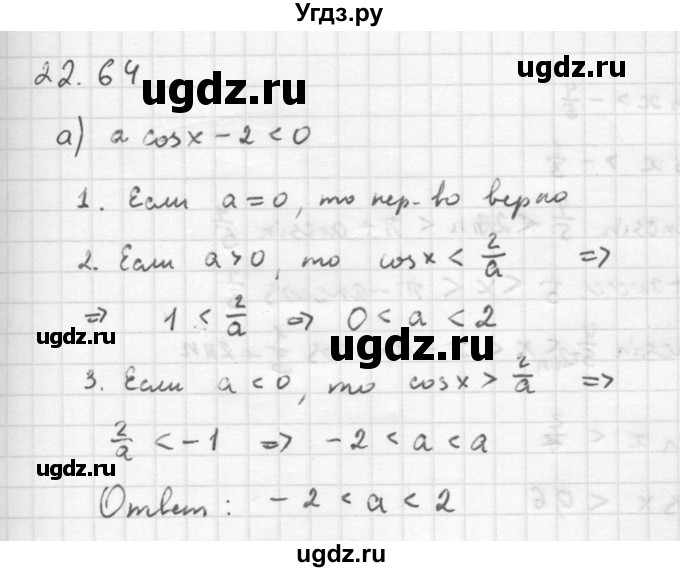 Угдз.ру
22.64
ugdz.ru
ugdz.ru
а) a cos x - 2 < 0
1. Если a = 0, то нер-во верно
2. Если a > 0, то cos x < 2/a =>
ugdz.ru
=> 1 < 2/a => 0 < a < 2
ugdz.ru
ugdz.ru
3. Если a < 0, то cos x > 2/a =>
2/a < -1 => -2 < a < a
ugdz.ru
ugdz.ru
Ответ: -2 < a < 2
ugdz.ru